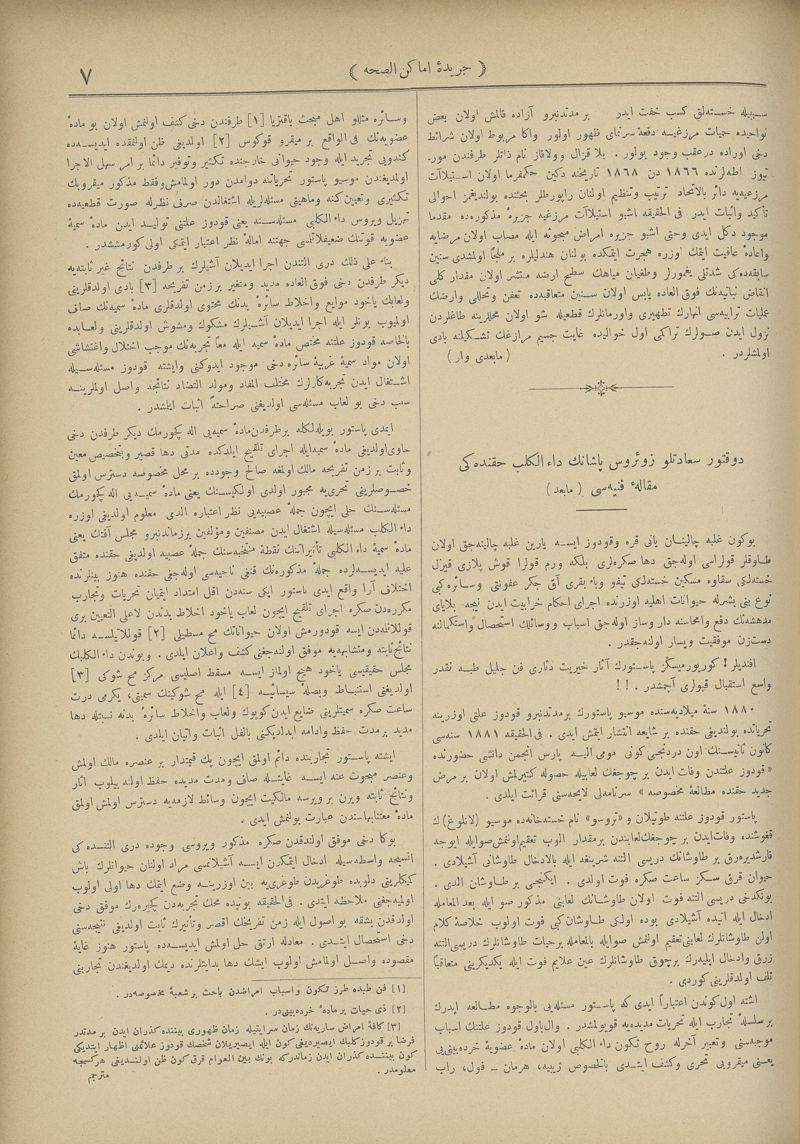 ﴿ جریدهٔ اماكن الصحه ﴾
٧
سبیله خسته‌لق كسب خفت ایدر بر مدتدنبرو آزاده قالمش اولان بعض
نواحیده حمیات مرزغیه دفعةً سرنمای ظهور اولور واكا مربوط اولان شرائط
دخی اوراده درعقب وجود بولور . بلا قزال وولافاز نام ذاتلر طرفندن مور.
تیوز اطه‌لرنده ١٨٦٦ دن ١٨٦٨ تاریخنه دكین حكمفرما اولان استیلاآت
مرزغیه‌یه دائر بالاتحاد ترتیب وتنظیم اولنان راپورطلر بحثنده بولندیغمز احوالی
تأكید واثبات ایدر فی الحقیقه اشبو استیلاآت مرزغیه جزیرهٔ مذكوره‌ده مقدما
موجود دكل ایدی وحتی اشبو جزیره امراض مبحوثه ایله مصاب اولان مرضایه
واعادهٔ عافیت ایتمك اوزره هجرت ایتمكده بولنان هندلیلره بر ملجأ اولمشدی سنین
سابقه‌ده‌كی شدتلی یغمورلر وطغیان میاهك سطح ارضه منتشر اولان مقدار كلی
انقاض نباتیه‌نك فوق العاده یابس اولان سنین متعاقبه‌ده تعفن وتحللی وارضك
عملیات ترابیه‌سی انهارك تطهیری واورمانلرك قطعیله شو اولان محللرینه طاغلردن
نزول ایدن صولرك تراكمی اول حوالیده غایت جسیم مرازغك تشكیلنه بادی
اولمشلردر . ( مابعدی وار )
دوقتور سعادتلو زوئروس پاشانك داء الكلب حقنده‌كی
مقالهٔ فنیه‌سی ( مابعد )
بوكون غلبه چالینان یانی قره وقودوز ایسه یارین غلبه چالینه‌جق اولان
طاوقلر قولراسی اوله‌جق دها صكره‌لری بلكه ورم قولرا قوش پلازی قیزل
خسته‌لكی سقاوه مسكین خسته‌لكی تیفو وباء بقری آق جكر عفونتی وسائره كبی
نوع بنی بشرله حیوانات اهلیه اوزرنده اجرای احكام خرابیت ایدن نیجه بلایای
مدهشه‌نك دفع وامحاسنه دار وساز اوله‌جق اسباب ووسائلك استحصال واستكمالنه
دسترس موفقیت ویسار اولنه‌جقدر .
افندیلر ! كوریورمیسكز پاستورك آثار خیریت دثاری فن جلیل طبه نقدر
واسع استقبال قپولری آچمشدر . ! !
١٨٨٠ سنهٔ میلادیه‌سنده موسیو پاستورك بر مدتدنبرو قودوز علتی اوزرینه
تحریاتده بولندیغی حقنده بر شایعه انتشار ایتمش ایدی . فی الحقیقه ١٨٨١ سنه‌سی
كانون ثانیسنك اون دردنجی كونی مومی الیه پارس انجمن دانشی حضورنده
« قودوز علتندن وفات ایدن بر چوجغك لعابیله حصوله كتیرلمش اولان بر مرض
جدید حقنده مطالعهٔ مخصوصه » سرنامه‌لی لایحه‌سنی قرائت ایلدی .
پاستور قودوز علتنه طوتیلان و « تروسو » نام خسته‌خانه‌ده موسیو (لانلوغ) ك
قغوشنده وفات ایدن بر چوجغك لعابندن بر مقدار آلوب تعقیم اولنمش صو ایله ایوجه
قارشدیره‌رق بر طاوشانك دریسی التنه شرینغه ایله بالادخال طاوشانی آشیلادی .
حیوان قرق سكز ساعت صكره فوت اولدی . ایكنجی بر طاوشان الدی .
بونكدخی دریسی التنه فوت اولان طاوشانك لعابنی مذكور صو ایله بعد المعامله
ادخال ایله انیده آشیلادی بوده اولكی طاوشان كبی فوت اولوب خلاصهٔ كلام
اولن طاوشانلرك لعابنی تعقیم اولنمش صو ایله بالمعامله برحیات طاوشانلرك دریسی التنه
زرق وادخال ایلیه‌رك برچوق طاوشانلرك عین علایم فوت ایله یكدیكرینی متعاقباً
تلف اولدقلرینی كوردی .
اشته اول كوندن اعتباراً ایدی كه پاستور مسئله‌یی بالوجوه مطالعه ایدرك
بر سلسلهٔ تجارب ایله تحریات مدیده‌یه قویولمشدر . والباول قودوز علتنك اسباب
موجبه‌سنی وتعبیر آخرله روح تكون داء الكلبی اولان مادهٔ عضویهٔ خرده‌بینی‌یی
یعنی میقروبی تحری وكشف ایتدی بالخصوص زیبیه ، هرمان ـ قول ، راب
وسائره مثللو اهل مبحث باقتریا [١] طرفندن دخی كشف اولنمش اولان بو مادهٔ
عضویه‌نك فی الواقع بر میقرو قوكوس [٢] اولدیغی ظن اولنمقده ایدیسه‌ده
كندویی تجرید ایله وجود حیوانی خارجنده تكثیر وتوفیر دائما بر امر سهل الاجرا
اولمدیغندن موسیو پاستور تحریاتنه دوامدن دور اولمامش وفقط مذكور میقروبك
تكثیری وتعیین كنه وماهیتی مسئله‌لریله اشتغالدن صرف نظرله صورت قطعیه‌ده
تهزیل ویروس داء الكلبی مسئله‌سنه یعنی قودوز علتنی تولید ایدن مادهٔ سمیهٔ
عضویه قوتنك ضعیفلاتلمسی جهتنه امالهٔ نظر اعتبار ایتمكی اولی كورمشدر .
بناءً علی ذلك دری التندن اجرا ایدیلان آشیلرك بر طرفدن نتائج غیر ثابته‌یه
دیكر طرفدن دخی فوق العاده مدید ومتغیر بر زمن تفریخه [٣] بادی اولدقلرینی
ولعابك یاخود موایع واخلاط سائرهٔ بدنك محتوی اولدقلری مادهٔ سمیه‌نك صاف
اولمیوب بونلر ایله اجرا ایدیلان آشیلرك مشكوك ومشوش اولدقلرینی ولعابده
بالخاصه قودوز علتنه مختص مادهٔ سمیه ایله معاً تجربه‌نك موجب اختلال واغتشاشی
اولان مواد سمیهٔ غریبهٔ سائره دخی موجود ایدوكنی وایشته قودوز مسئله‌سیله
اشتغال ایدن تجربه‌كارلرك مختلف المفاد ومولد التضاد نتائجه واصل اولملرینه
سبب دخی بو لعاب مسئله‌سی اولدیغنی صراحةً اثبات ایلشدر .
ایمدی پاستور بویله‌لكله بر طرفدن مادهٔ سمیه‌یی اله كچورمك دیكر طرفدن دخی
حاوی اولدیغی مادهٔ سمیه ایله اجرای تلقیح ایلدكده مدتی دها قصیر وبتخصیص معین
وثابت بر زمن تفریخه مالك اولمغه صالح وجودده بر محل مخصوصه دسترس اولمق
خصوصلرینی تحری‌یه مجبور اولدی اولكیسنك یعنی مادهٔ سمیه‌یی اله كچورمك
مسئله‌سنك حلی ایچون جملهٔ عصبیه‌یی نظر اعتباره الدی معلوم اولدیغی اوزره
داء الكلب مسئله‌سیله اشتغال ایدن مصنفین ومؤلفین بر زماندنبرو مجلس آفتك یعنی
مادهٔ سمیهٔ داء الكلبی تأثیراتنك نقطهٔ منتخبه‌سنك جملهٔ عصبیه اولدیغی حقنده متفق
علیه ایدیسه‌لرده جملهٔ مذكوره‌نك قنغی ناحیه‌سی اوله‌جغی حقنده هنوز بینلرنده
اختلاف آرا واقع ایدی پاستور ایكی سنه‌دن اقل امتداد ایتمیان تحریات وتجارب
مكرره‌دن صكره اجرای تلقیح ایچون لعاب یاخود اخلاط بدندن لاعلی التعیین بری
قوللانیله‌دن ایسه قودورمش اولان حیواناتك مخ مستطیلی [٢] قوللانیلسه دائما
نتائج ثابته ومتشابهه‌یه موفق اولنه‌جغنی كشف واعلان ایلدی . وبوندن داء الكلبك
مجلس حقیقیسی یاخود هیچ اولماز ایسه مسقط اصلیسی مركز مخ شوكی [٣]
اولدیغنی استنباط وبصلهٔ سیسائیه [٤] ایله مخ شوكینك سمیتی ، یكرمی درت
ساعت صكره سمیتلرینی ضایع ایدن كوپوك ولعاب واخلاط سائرهٔ بدنه نسبتله دها
مدید بر مدت حفظ وادامه ایدلدیكنی بالفعل اثبات واتیان ایلدی .
ایشته پاستور تجاربنده دائم اولمق ایچون پك قیمتدار بر عنصره مالك اولمش
وعنصر مبحوث عنه ایسه غایتله صاف ومدت مدیده حفظ اولنه بیلوب آثار
ونتائج ثابته ویرن بر ویرسه مالكیت ایچون وسائط لازمه‌یه دسترس اولمش اولمق
مادهٔ معتنابهاسندن عبارت بولنمش ایدی .
بوكا دخی موفق اولندقدن صكره مذكور ویروسی وجوده دری التنده‌كی
انسیجه واسطه‌سیله ادخال ایتمكدن ایسه آشیلانمسی مراد اولنان حیوانلرك باش
كیكلرینی دلوبده طوغریدن طوغری‌یه بین اوزرینه وضع ایتمك دها اولی اولوب
اولمیه‌جغنی ملاحظه ایتدی . فی الحقیقه بونیده محك تجربه‌دن كچیره‌رك موفق دخی
اولدقدن بشقه بو اصول ایله زمن تفریخك اقصر وتأثیرك ثابت اولدیغی نتیجه‌سنی
دخی استحصال ایتدی . معادله ارتق حل اولمش ایدیسه‌ده پاستور هنوز غایهٔ
مقصوده واصل اولمامش اولوب ایشك دها بدایتلرنده دیمك اولدیغندن تجاربنی
[١] فن طبده طرز تكون واسباب امراضدن باحث بر شعبهٔ مخصوصه‌در .
[٢] ذی حیات بر مادهٔ خرده‌بینی‌در .
[٣] كافهٔ امراض ساریه‌نك زمان سرایتیله زمان ظهوری بیننده كذران ایدن بر مدتدر
فرضا بر قودوز كلبك ایصیردیغی كون ایله ایصیریلان شخصك قودوز علائمی اظهار ایتدیكی
كون بیننده كذران ایدن زماندركه بونك بین العوام قرق كون ظن اولندیغی هركسجه
معلومدر . مترجم